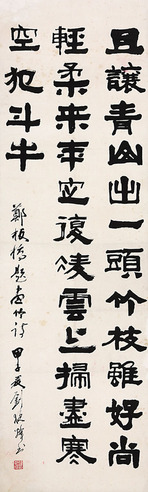 且讓青山出一頭竹枝雖好尚
輕柔来年定復凌雲上掃盡寒
空犯斗牛
鄭板橋題畫竹詩 甲子夏劉